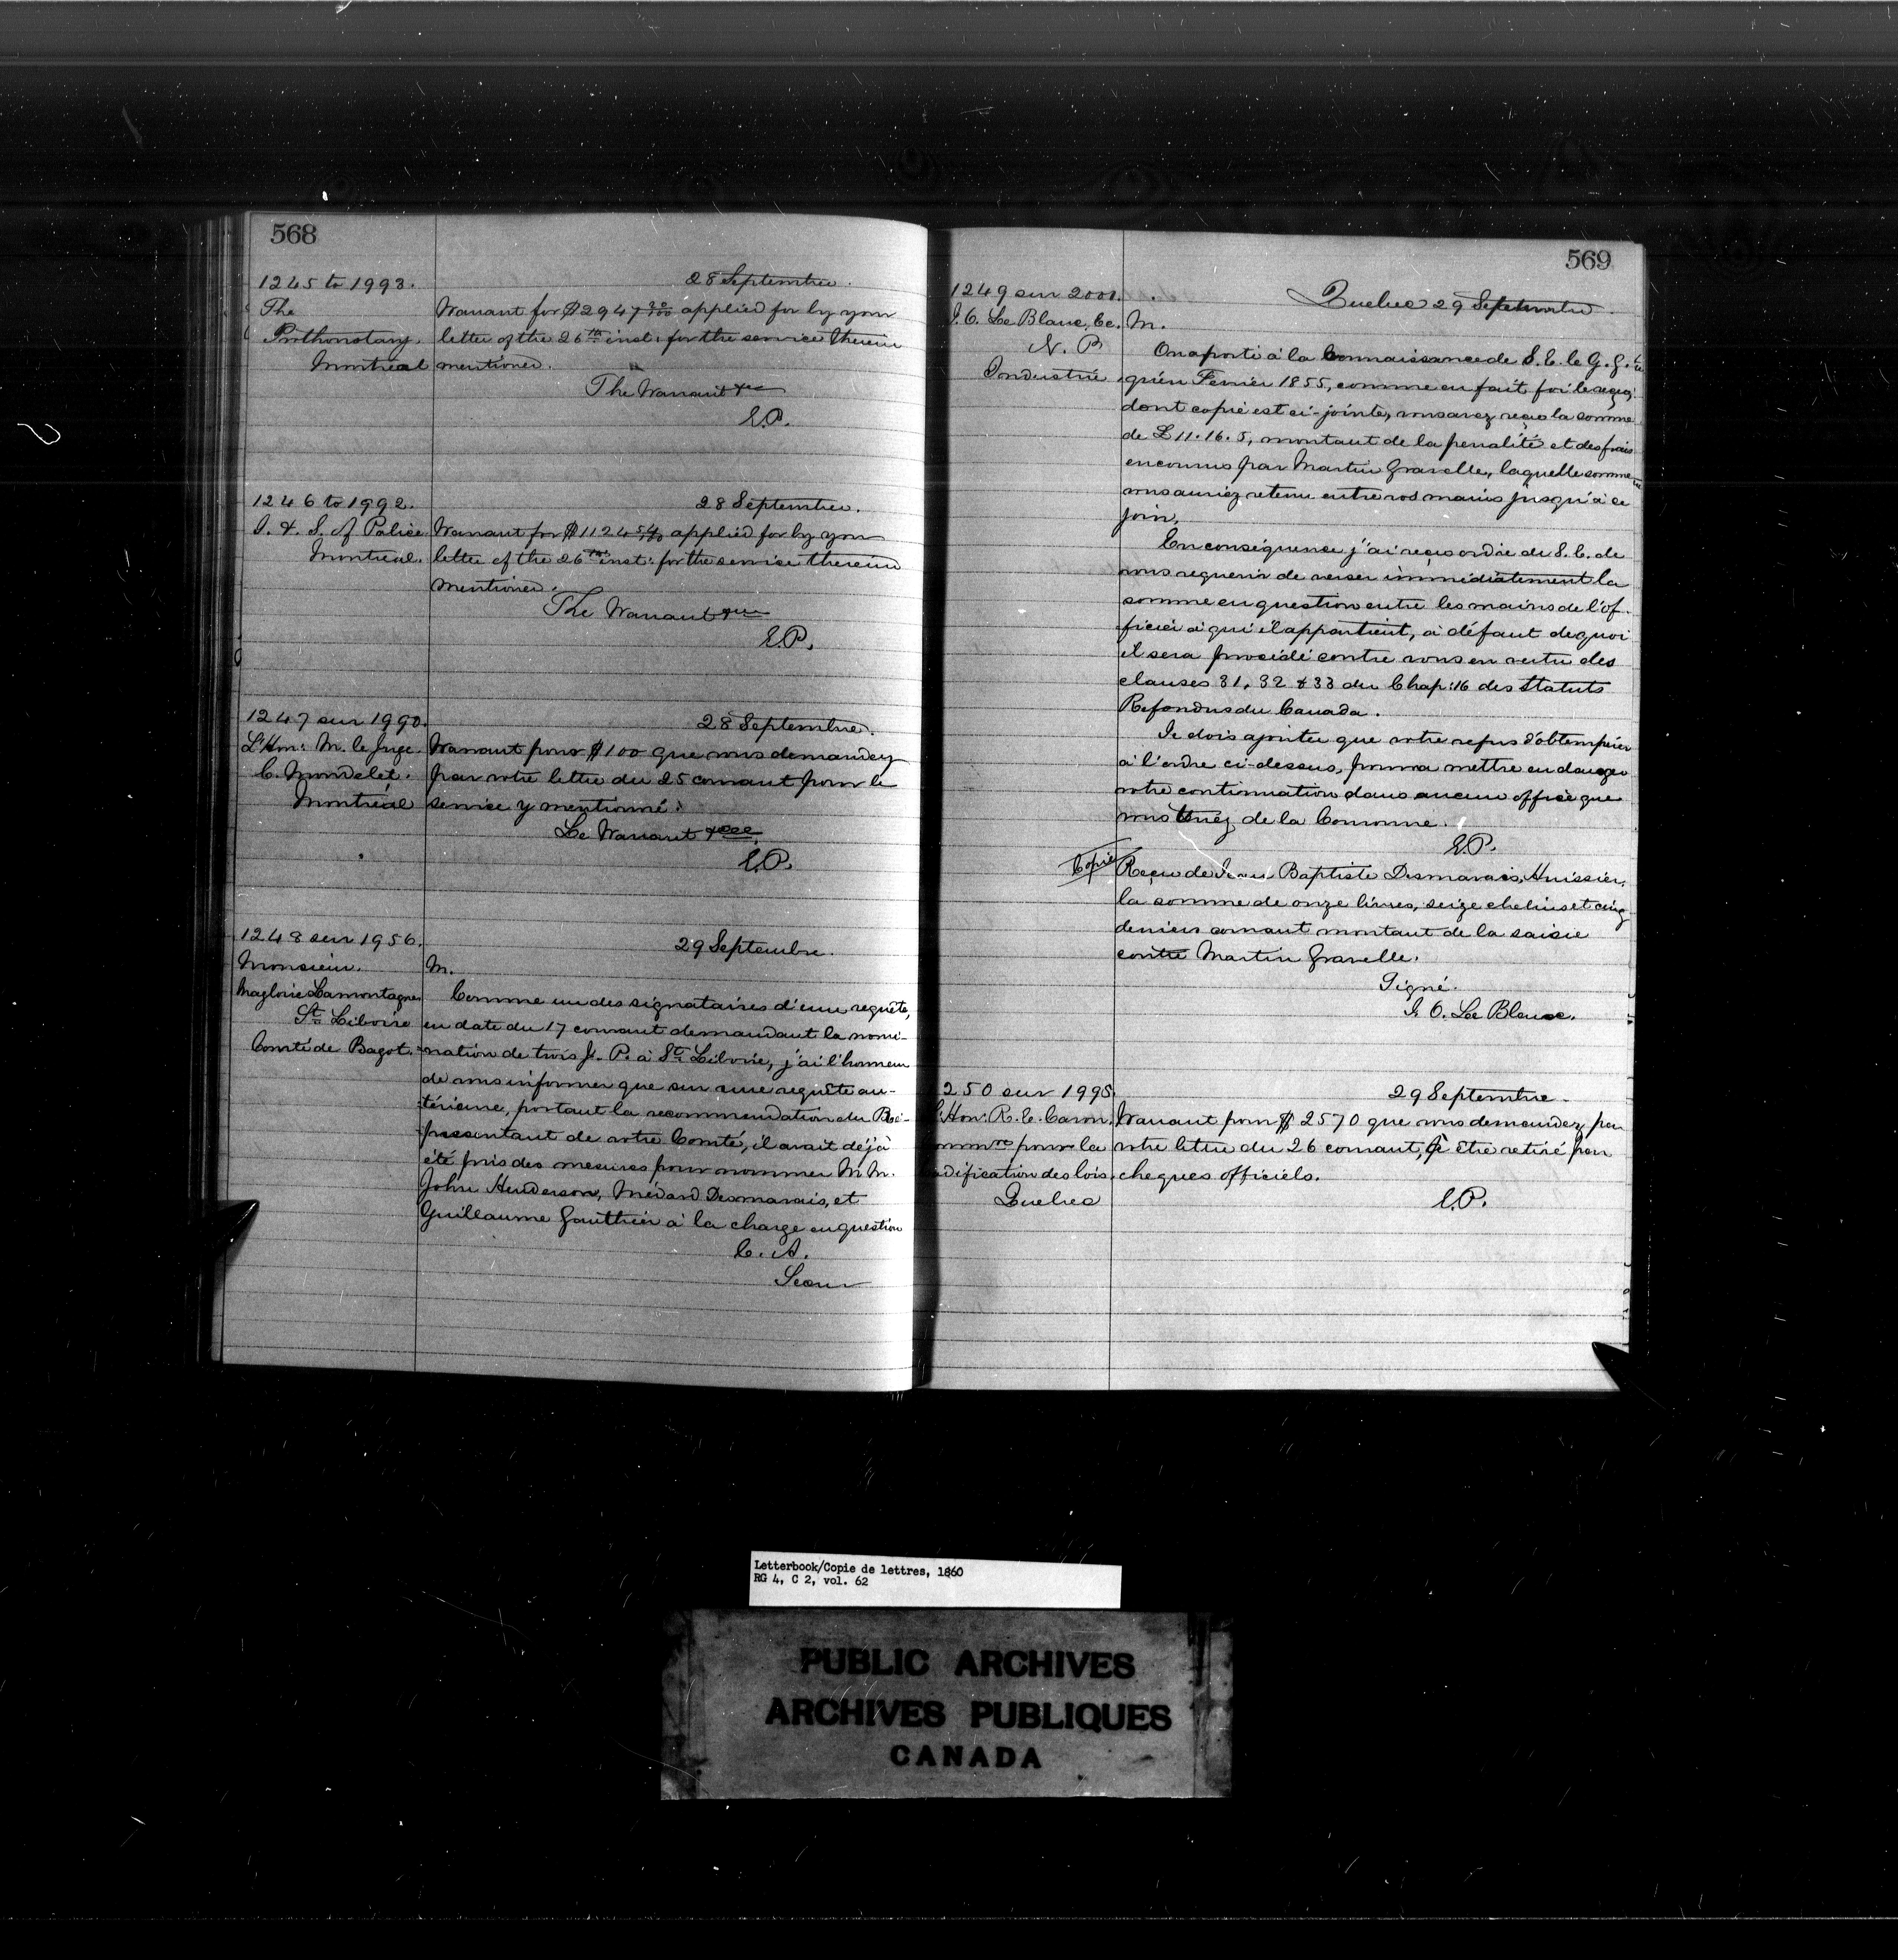 568
1245 to 1993.
The
Prothonotary.
Montreal
28 Septembre.
Warrant for $2947 30/100 applied for by your
letter of the 26th inst: for the service therein
mentioned.
The Warrant &c
E.P.
1246 to 1992.
I. & S. of Police
Montreal.
28 Septembre.
Warrant for $1124 54/100 applied for by your
letter of the 26th inst: for the service therein
mentioned.
The Warrant &c
E.P.
1247 sur 1990.
L'Hon: M. le Juge
C. Mondelet.
Montréal
28 Septembre.
Warrant pour $100 que vous demandez
par votre lettre du 25 courant pour le
service y mentionné.
Le Warrant &c
E.P.
1248 sur 1956.
Monsieur
Magloire Lamontagne
St. Liboire
Comté de Bagot.
29 Septembre.
M.
Comme un des signataires d'une requête,
en date du 17 courant demandant la nomi-
nation de trois J. P. à St. Liboire, j'ai l'honneur
de vous informer que sur une requête an-
térieure, portant la recommendation du Re-
présentant de votre Comté, il avait déjà
été pris des mesures pour nommer M.M.
John Henderson, Médard Desmarais, et
Guillaume Gauthier à la charge en question
C. A.
569
1249 sur 2001.
J. O. Le Blanc, &c.
N. P
Industrie
Quebec 29 Septembre.
M.
On a porté à la Connaissance de S. E. le G. G.
qu'en Fevrier 1855, comme en fait foi le reçu
dont copie est ci-jointe, vous avez reçu la somme
de £11.16.5, montant de la penalité et des frais
encourus par Martin Gravelle, laquelle somme
vous auriez retenu entre vos mains jusqu'à ce
jour.
En conséquence j'ai reçu ordre de S. E. de
vous requerir de verser immédiatement la
somme en question entre les mains de l'of-
ficier à qui il appartient, à défaut de quoi
il sera procédé contre vous en vertu des
clauses 31, 32 & 33 du Chap: 16 des Statuts
Refondus du Canada.
Je dois ajouter que votre refus d'obtempérer
à l'ordre ci-dessus, pourra mettre en danger
votre continuation dans aucun office que
vous tenéz de la Couronne.
E.P.
Copie
Reçu de Jean Baptiste Desmarais, Huissier,
la somme de onze livres, seize chelins et cinq
deniers courant montant de la saisie
contre Martin Gravelle.
Signé.
J. O. Le Blanc.
250 sur 1995
Hon: R. E. Caron,
pour la
dification des lois.
Quebec
29 Septembre.
Warrant pour $2570 que vous demandez par
votre lettre du 26 courant, à être retiré par
cheques officiels.
E.P.
Letterbook/Copie de lettres, 1860
RG 4, C 2, vol. 62
PUBLIC ARCHIVES
ARCHIVES PUBLIQUES
CANADA